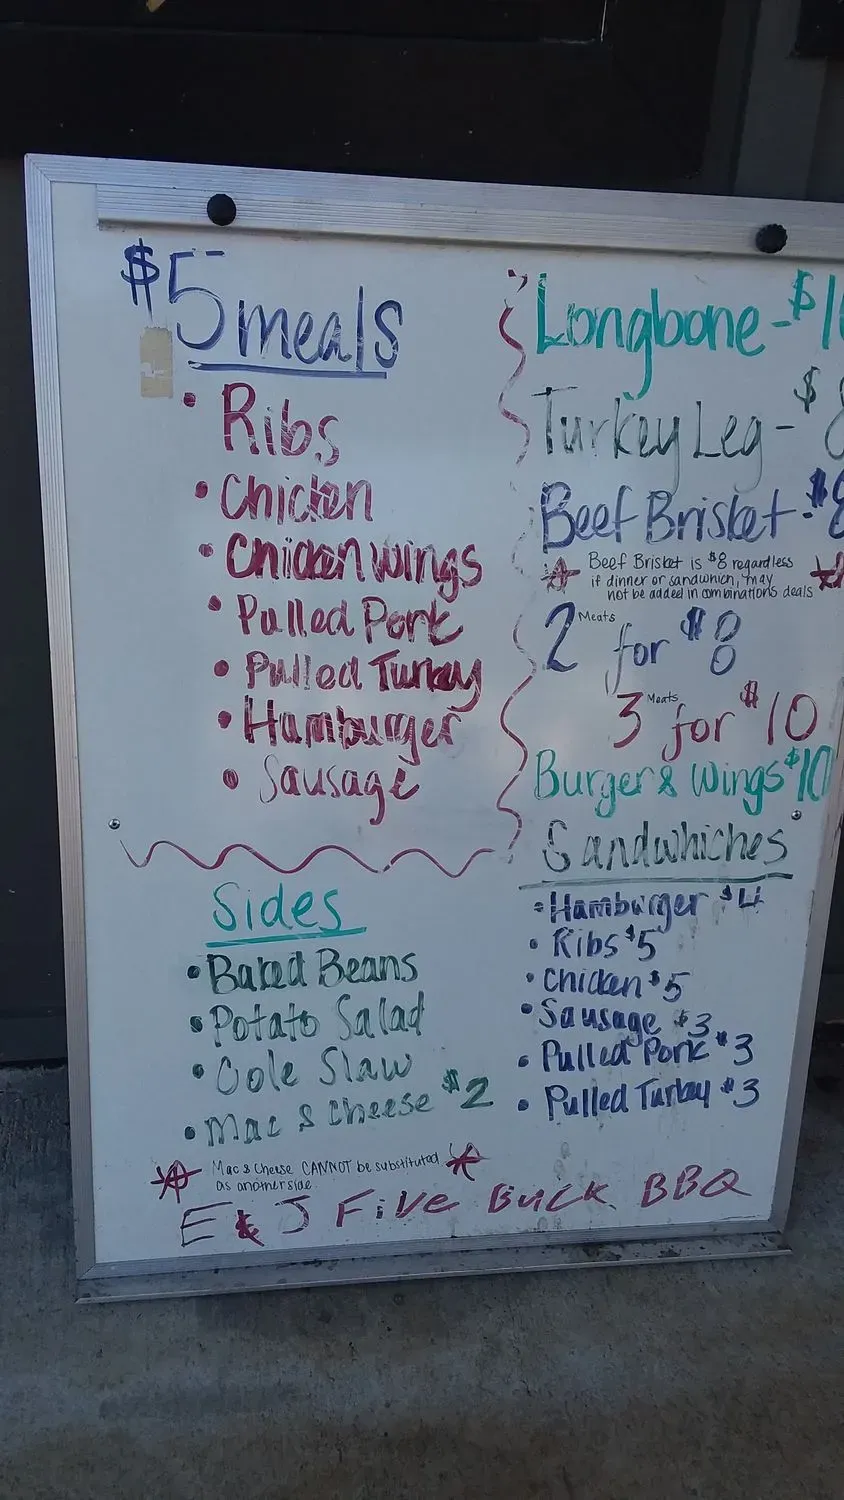 $5 meals
• Ribs
• Chicken
• Chicken Wings
• Pulled Pork
• Pulled Turkey
• Hamburger
• Sausage
Sides
• Baked Beans
• Potato Salad
• Cole Slaw
• Mac & Cheese $2
Mac & Cheese CANNOT be substituted
as another side.
Longbone - $1
Turkey Leg - $8
Beef Brisket - $8
Beef Brisket is $8 regardless
if dinner or sandwhich, may
not be added in combinations deals
2 Meats for $8
3 Meats for $10
Burger & Wings $10
Sandwhiches
• Hamburger $4
• Ribs $5
• Chicken $5
• Sausage $3
• Pulled Pork $3
• Pulled Turkey $3
E & J Five Buck BBQ